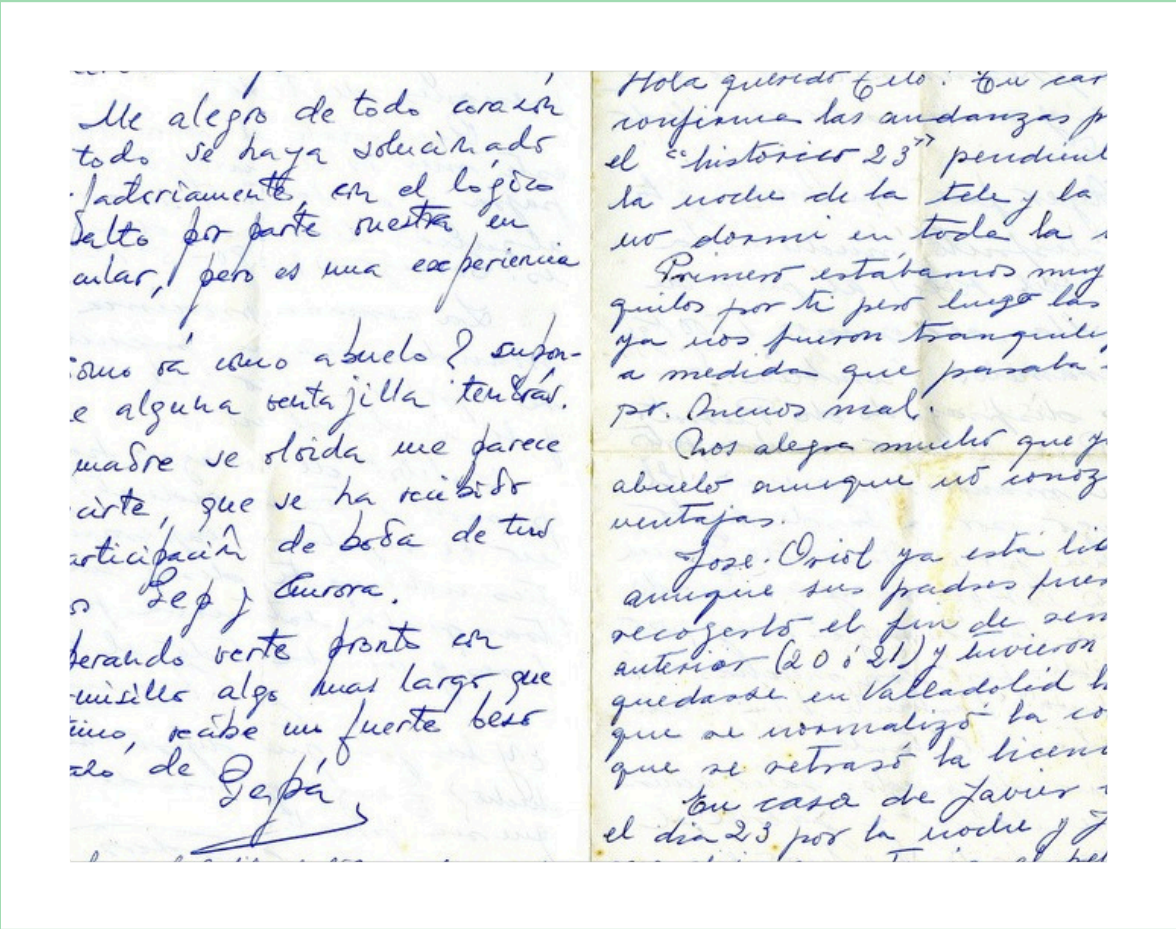 Me alegro de todo corazón
todo se haya solucionado
factoriamente, con el lógico
salto por parte nuestra en
cular, pero es una experiencia
como vá como abuelo? supon-
e alguna ventajilla tendrás.
madre se olvida me parece
cirte, que se ha recibido
articipación de boda de tus
os Pepe y Aurora.
perando verte pronto con
misillo algo mas largo que
timo, recibe un fuerte beso
de
Hola querido Tito: En car
confirma las andanzas p
el "histórico 23" pendient
la noche de la tele y la
no dormí en toda la
Primero estábamos muy
quilos por ti pero luego las
ya nos fueron tranquili
a medida que pasaba
po. Menos mal.
Nos alegra mucho que y
abuelo aunque no conoz
ventajas.
Jose-Oriol ya está lic
aunque sus padres fuer
recogerlo el fin de sem
anterior (20 ó 21) y tuvieron
quedarse en Valladolid h
que se normalizó la co
que se retrasó la licen
En casa de Javier
el dia 23 por la noche y J